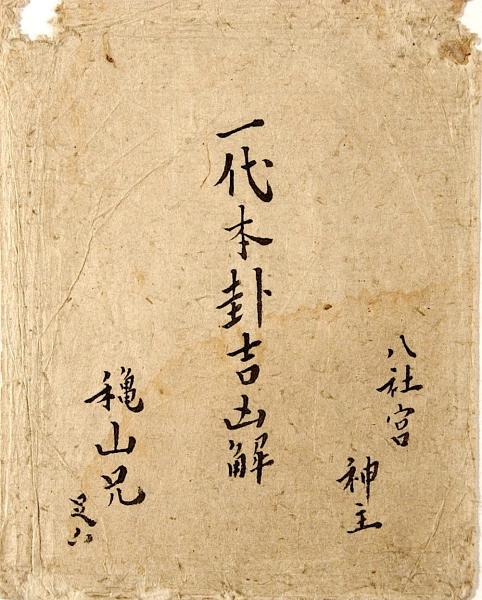 八社宮 神主
一代本卦吉凶解
穐山兄